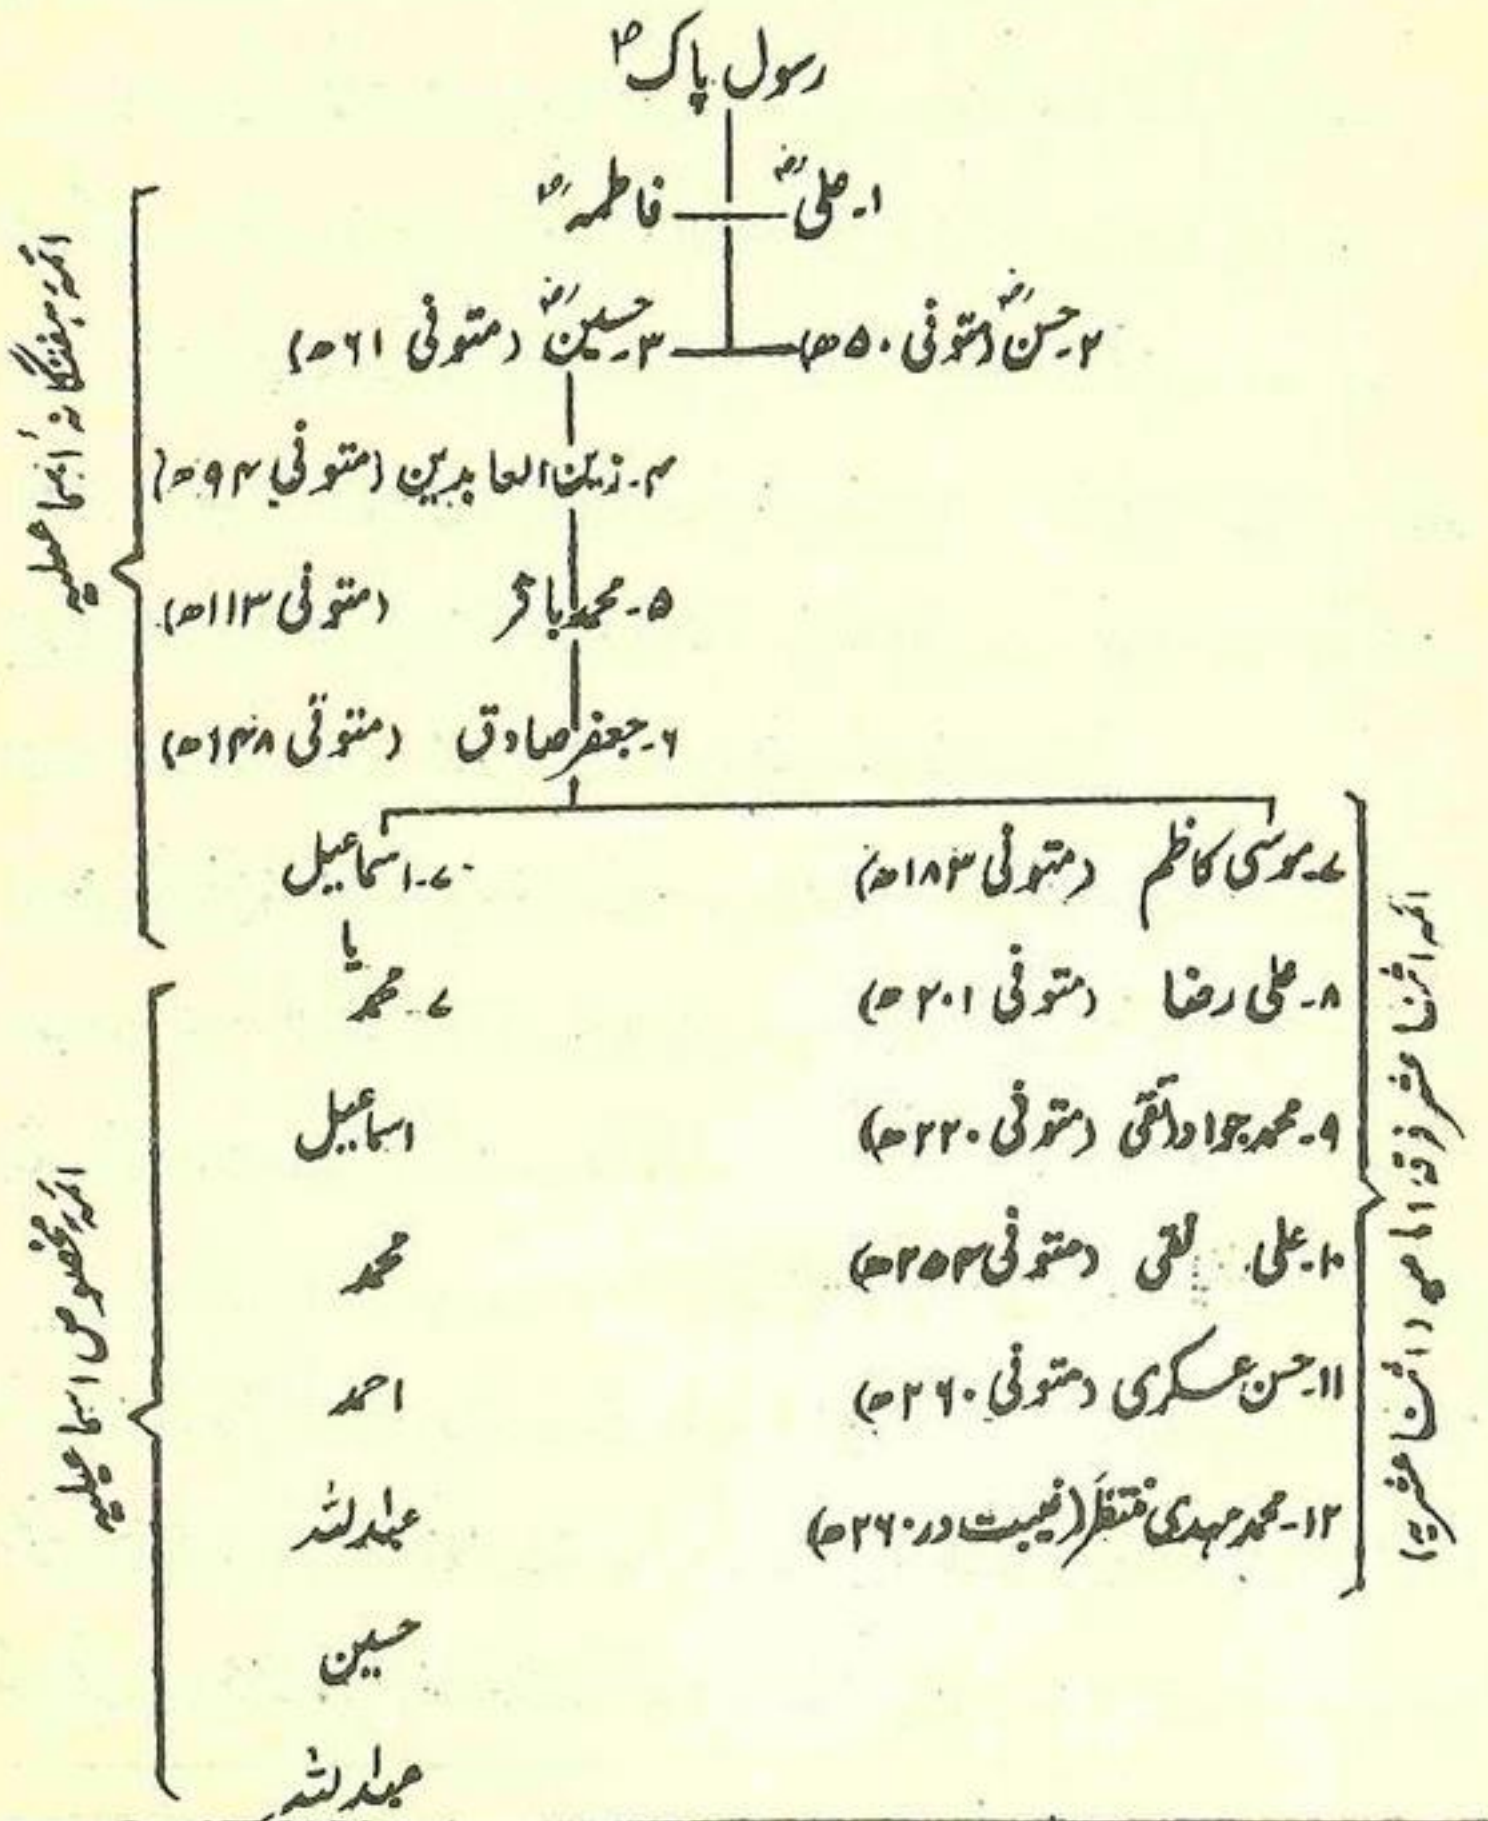 رسول پاکؐ
۱۔ علیؓ فاطمہؓ
۲۔ حسنؓ (متوفی ۵۰ھ) ۳۔ حسینؓ (متوفی ۶۱ھ)
۴۔ زین العابدین (متوفی ۹۴ھ)
۵۔ محمد باقر (متوفی ۱۱۳ھ)
۶۔ جعفر صادق (متوفی ۱۴۸ھ)
ائمۂ ہفتگانۂ اسماعیلیہ
۷۔ موسیٰ کاظم (متوفی ۱۸۳ھ)
۸۔ علی رضا (متوفی ۲۰۱ھ)
۹۔ محمد جواد تقی (متوفی ۲۲۰ھ)
۱۰۔ علی نقی (متوفی ۲۵۴ھ)
۱۱۔ حسن عسکری (متوفی ۲۶۰ھ)
۱۲۔ محمد مہدی منتظَر (غیبت در ۲۶۰ھ)
ائمہ اثنا عشر فرقۂ امامیہ (اثنا عشریہ)
۷۔ اسماعیل
یا
۷۔ محمد
اسماعیل
محمد
احمد
عبداللہ
حسین
عبداللہ
ائمۂ مخصوص اسماعیلیہ